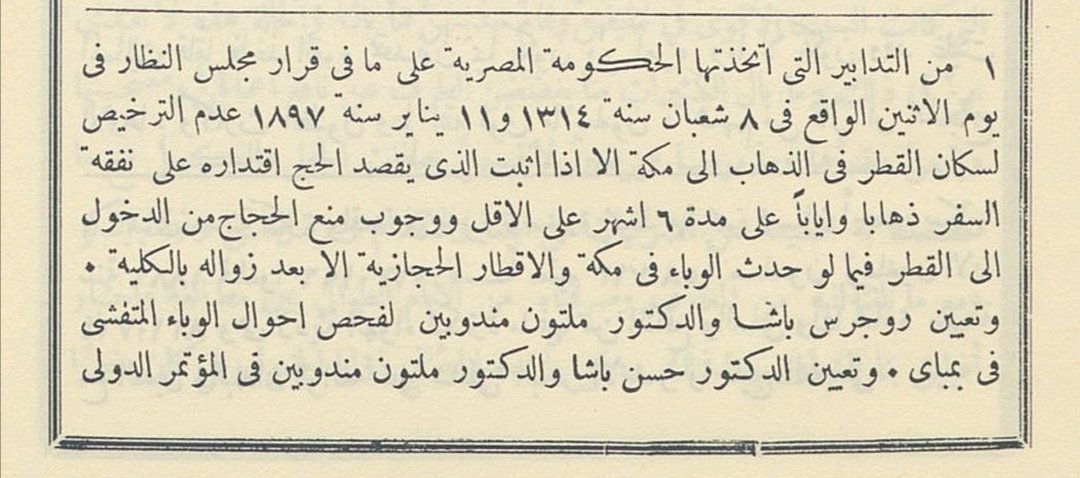 ١ من التدابير التى اتخذتها الحكومة المصرية على ما فى قرار مجلس النظار فى
يوم الاثنين الواقع فى ٨ شعبان سنة ١٣١٤ و١١ يناير سنة ١٨٩٧ عدم الترخيص
لسكان القطر فى الذهاب الى مكة الا اذا اثبت الذى يقصد الحج اقتداره على نفقة
السفر ذهابا واياباً على مدة ٦ اشهر على الاقل ووجوب منع الحجاج من الدخول
الى القطر فيما لو حدث الوباء فى مكة والاقطار الحجازية الا بعد زواله بالكلية ٠
وتعيين روجرس باشا والدكتور ملتون مندوبين لفحص احوال الوباء المتفشى
فى بمباى ٠ وتعيين الدكتور حسن باشا والدكتور ملتون مندوبين فى المؤتمر الدولى